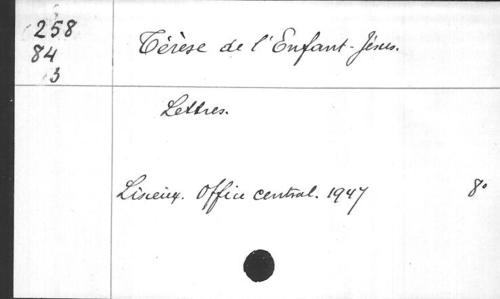 258
84
3
Térèse de l'Enfant-Jésus.
Lettres.
Lisieux. Office central. 1947 8°